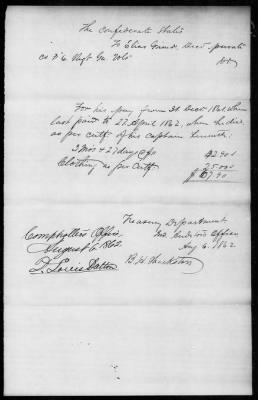 The Confederate States
To Elias Grimes, Decd. private
Co F 6 Regt Ga. Vols Dr
For his pay from 31 Decr. 1861 when
last paid to 27 April 1862, when he died,
as per certf of his captain herewith:
3 mos & 27 days @ $11 $42.90
Clothing as per Certf 25.00
$67.90
Treasury Department
2nd Auditors Office
Aug 6. 1862
Comptrollers Office
August 6. 1862
J. Louis Dalton
B. H. Thurston